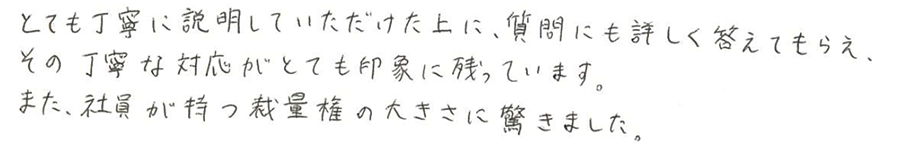 とても丁寧に説明していただけた上に、質問にも詳しく答えてもらえ、
その丁寧な対応がとても印象に残っています。
また、社員が持つ裁量権の大きさに驚きました。